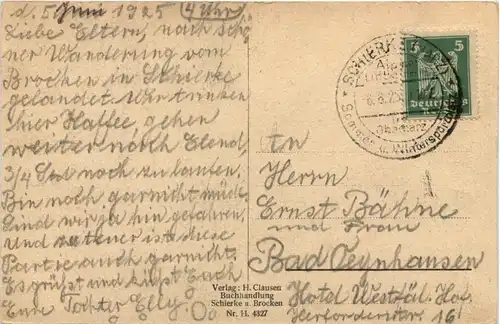 d. 5 Juni 1925 (4 Uhr)
Liebe Eltern, nach schö-
ner Wanderung vom
Brocken in Schierke
gelandet. Wir trinken
hier Kaffee gehen
weiter nach Elend
3/4 Std noch zu laufen.
Bin noch garnicht müde.
Sind wir ja hin gefahren,
und zu teuer ist diese
Partie auch garnicht.
Es grüßt und küßt Euch
Eure Tochter Elly.
SCHIERKE
6.6.25
Oberharz
Sommer- u. Winter
5 5
Deutsches
An
Herrn
Ernst Bähne
und Frau
Bad Oeynhausen
Hotel Westfäl. Hof
Herforderstr. 16
Verlag: H. Clausen
Buchhandlung
Schierke a. Brocken
Nr. H. 4327